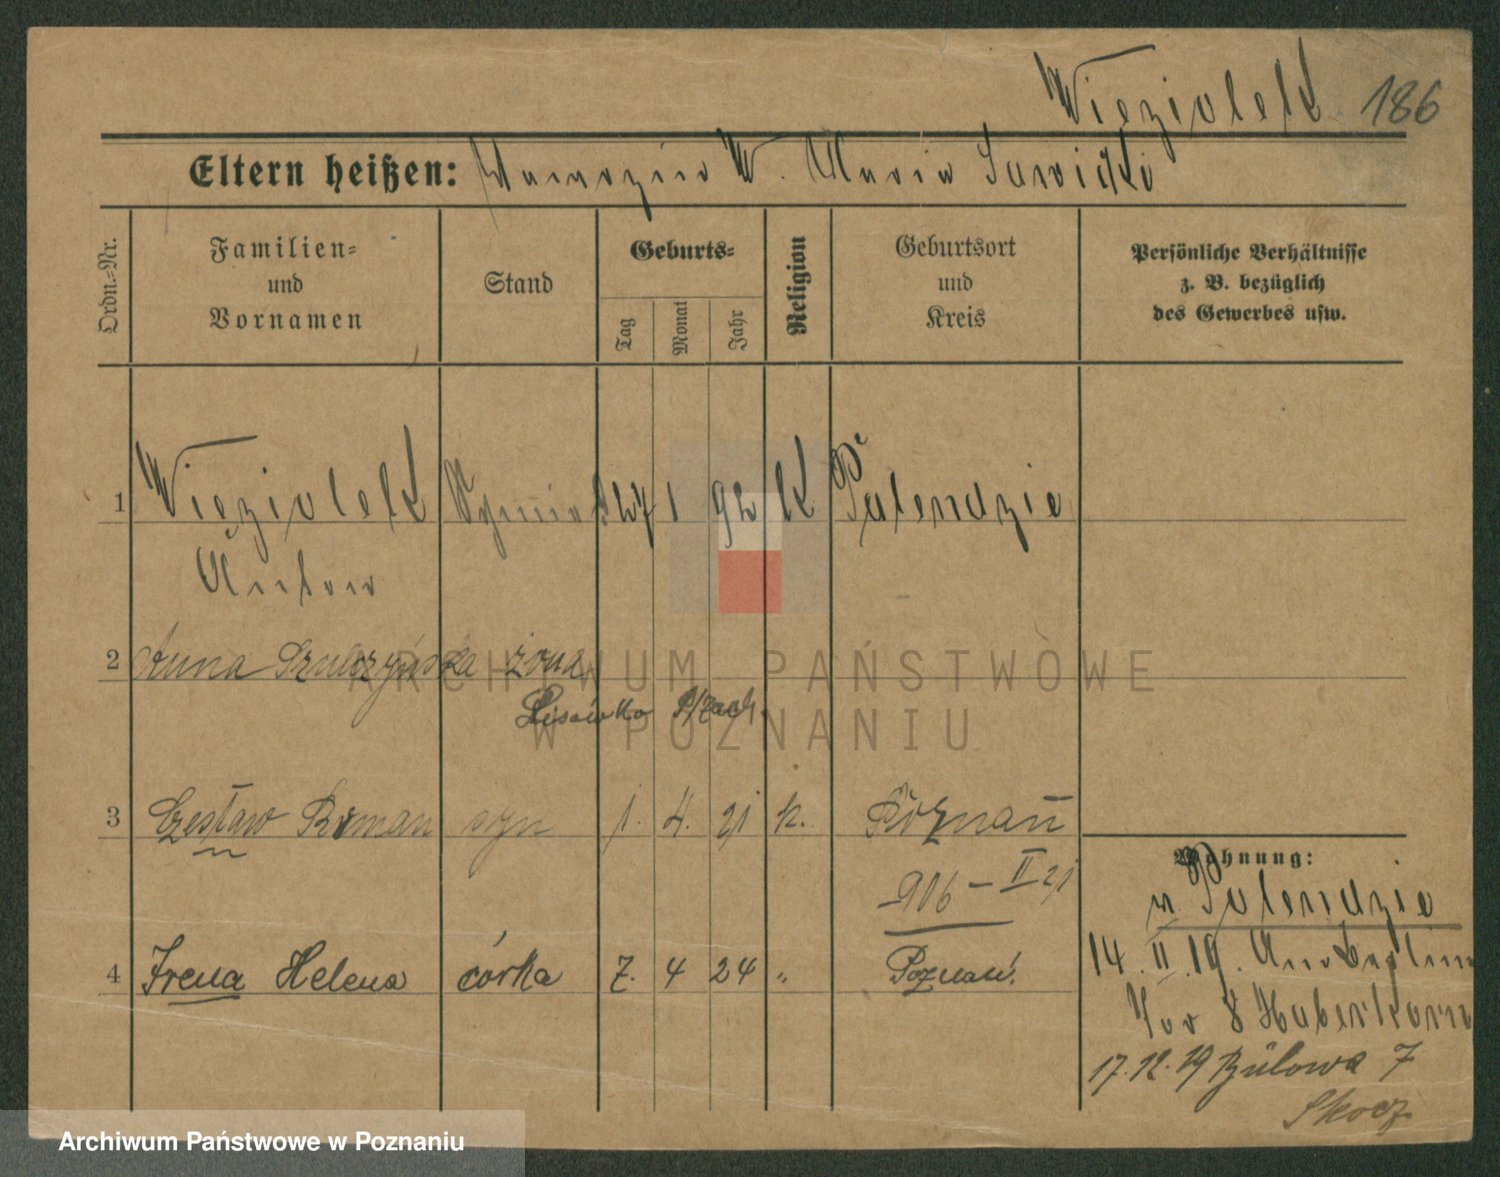 Wieziolek 186
Eltern heißen: W. Maria Sawicki
Ordn.=Nr.
Familien=
und
Vornamen
Stand
Geburts=
Tag
Monat
Jahr
Religion
Geburtsort
und
Kreis
Persönliche Verhältnisse
z. B. bezüglich
des Gewerbes usw.
1 Wieziolek 27 1 92 K Palendzie
Anton
2 Anna żona
3 Czesław Roman syn 1. 4. 21 k. Poznań
906 – II 21
4 Irena Helena córka 7. 4 24 " Poznań.
Wohnung:
v. Palendzie
14. II. 19. Am Berliner
Tor 8 Haberkorn
17.12.19 Bülowa 7
Skocz
ARCHIWUM PAŃSTWOWE
W POZNANIU
Archiwum Państwowe w Poznaniu